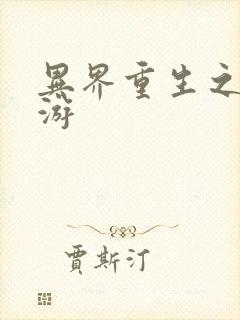 異界重生之
游
賈斯汀